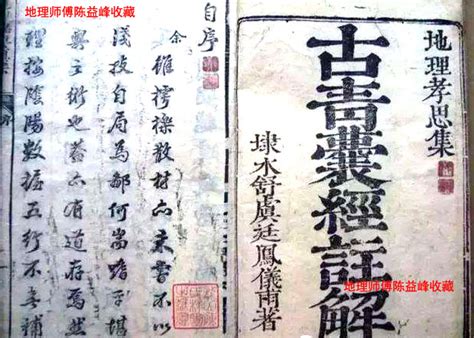 地理师傅陈益峰收藏
地理孝思集
古青囊經註解
水舒虞廷鳳儀甫著
地理师傅陈益峰收藏
自序
余雖樗櫟散材亦未嘗不以
淺技自局為鄙何堪
輿之術也蓋亦有道存焉然
理按陰陽數據五行不無補